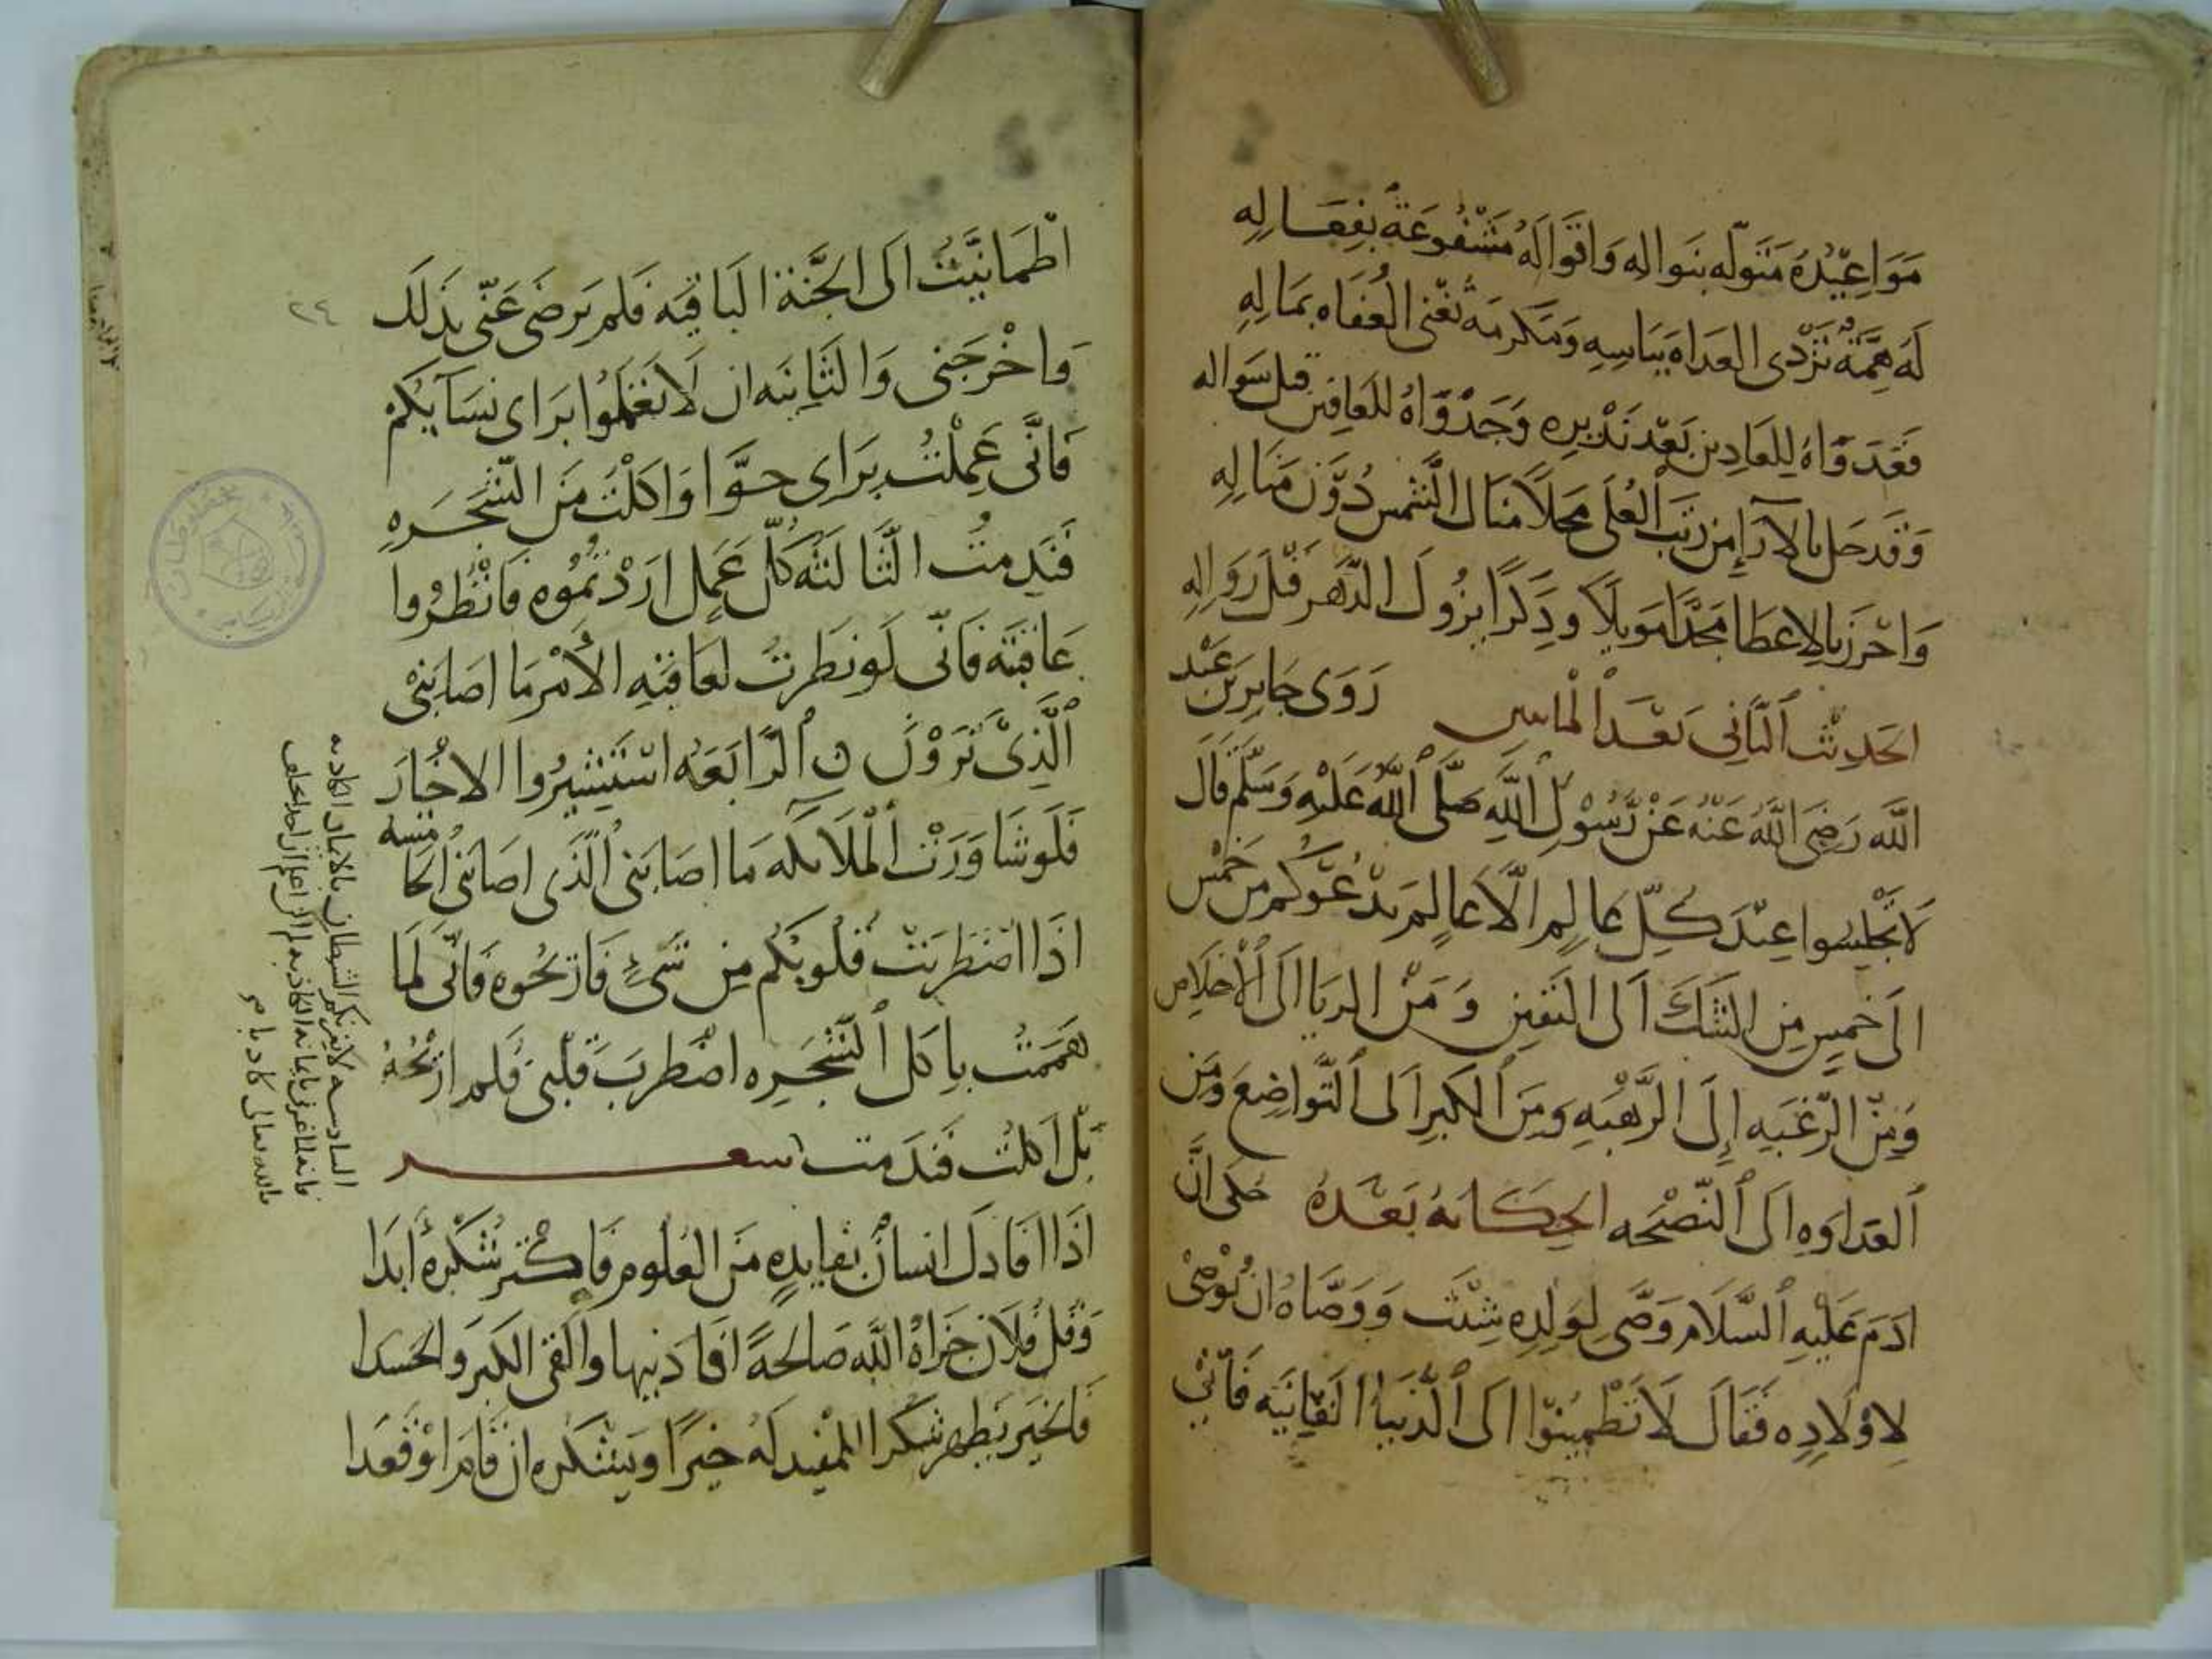 مَوَاعِيْدُهُ مَتَولّه بنَوالِه وَاقوَاله مَشْفُوعَةٌ بفِعَالِهِ
لَهُ هِمَّةٌ تُرْدى العداه بِبَاسِهِ وَمَكرمَةٌ تُغْنى العُفَاه بمَالِهِ
فَعَدوَاهُ لِلعَادِين بَعْد نَذِيرِه وَجَدْوَاهُ للعَافِين قبل سَواله
وَقَد حَل بالآرَاءِ من رتب العُلَى مَحَلاً مَنَال الشَّمس دُوْنَ مَنَالِهِ
وَاحْرَز بالاِعطَا مَجْدًا مَوبلاً وذِكرًا يزُولُ الدَّهر قبلَ زوَالِهِ
الحَدِيْث الثَّانِى بَعْد الماس رَوَى جَابِر بن عَبْد
الله رَضِىَ اللهُ عَنْهُ عَنْ رَّسُوْلِ اللهِ صَلَّى اللهُ عَلَيْهِ وَسَلَّم قَالَ
لَا تَجْلِسُوا عِنْدَ كلِّ عَالِمٍ الَّا عَالِم يَدْعُوكُم مِن خَمْسٍ
الَى خَمسٍ مِن الشَّكِّ اَلى اليَقين وَ مَن الريَا الَى الاخلَاص
وَمِنَ الرَّغْبَهِ إِلَى الرَّهْبَهِ وَمِنَ الكِبرِ اَلى التَّوَاضِع وَمَن
العَدَاوَهِ الَى النَّصْيحَه الحِكَايهُ بَعْدهُ حكى انَّ
ادَم عَلَيْهِ السَّلَام وَصَّى لوَلدِهِ شِيْث وَوَصَّاهُ ان يُوْصِىْ
لاوْلَادِه فَقَالَ لَا تَطْمِينُوّا الَى الدُّنيَا الفَانِيَه فَانِّى
اطْمَانيَّتُ الَى الجَنَّة البَاقِيَه فَلَم يَرضَى عَنّى بذلك
وَاخْرَجَنى وَالثَّانِيَه ان لَا تَعْمَلُوا برَاى نِسَآيِكُم
فَانِّى عَمِلْتُ بِرَاى حَوَّا وَاكَلْتُ مِنَ الشَّجَرَهِ
فَنَدِمتُ الثَّالثَهُ كلّ عَمل ارَدْتُمُوه فَانْظُرُوا
عَاقبَتَه فَانّى لَو نَظَرتُ لعَاقبَهِ الاَمْر مَا اصَابَنىْ
الَّذِىْ تَرَوْنَ الرَّابَعَه اسْتَشِيرُوا الاخْيَارَ
فَلَو شَاوَرْتُ الملَايكه مَا اصَابَنى الَّذى اصَابَنى الخامسه
اذَا اضْطَرَبَتْ قُلوبُكُم مِن شَىْءٍ فَاتركُوه فَانّى لَمَا
هَمَمَتُ باكل الشَّجَرِه اضْطرَبَ قَلْبى فَلم اترُكْهُ
بَل اكلتُ فنَدمتُ شعر
اذَا افَادكَ انسَانٌ بفَايدهٍ مَن العُلوم فَاكْثر شُكْرَهُ ابَدَا
وَقُل فُلَان جَزاهُ الله صَالحَةً افَادَنيها والقى الكِبرَ والحَسَدَا
فَالخَيِّر يظهر شكر المفيد لهُ خَيرًا ويَشْكره ان قَامَ اوْ قَعَدَا
السادسه لا يغرنكم الشيطان بالايمان الكاذبه
فانه اغرنى بايمانه الكاذبه
٢٤